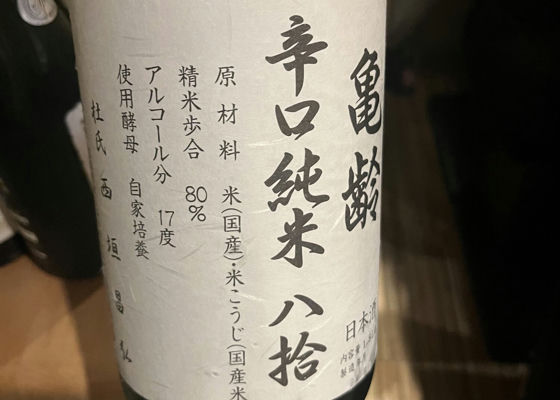 亀齢
辛口純米 八拾
日本酒
内容量 1.8
製造年月
原材料 米(国産)・米こうじ(国産米
精米歩合 80%
アルコール分 17度
使用酵母 自家培養
杜氏 西垣昌弘